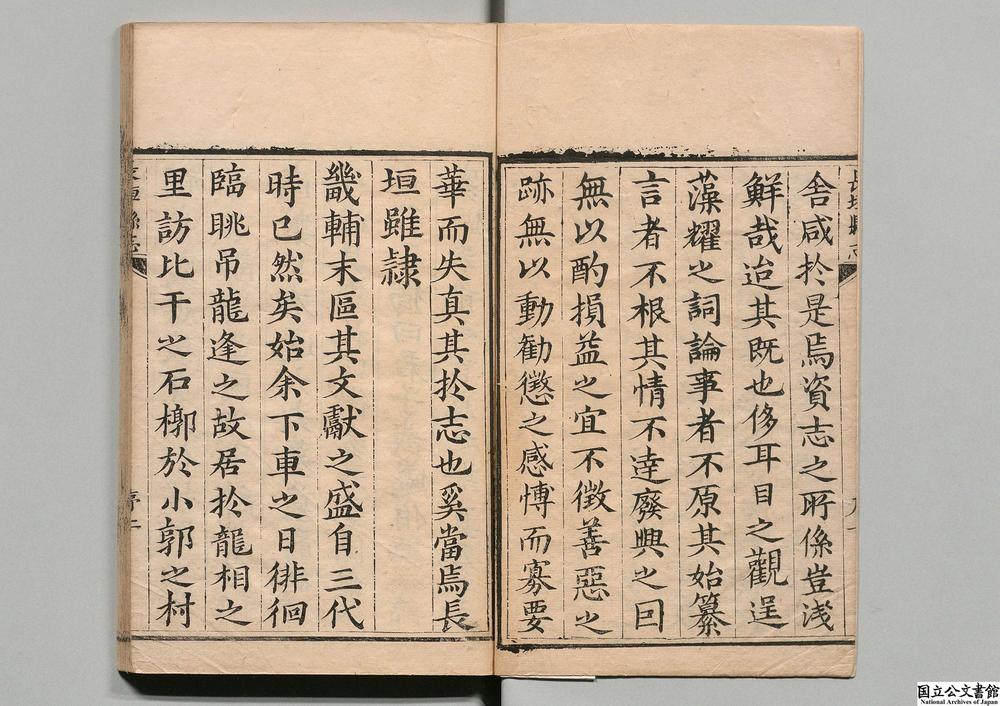 舍咸於是焉資志之所係豈浅
鮮哉迨其既也侈耳目之觀逞
藻耀之詞論事者不原其始纂
言者不根其情不逹廢興之囙
無以酌損益之宜不徵善惡之
跡無以動勸懲之感愽而寡要
華而失真其扵志也奚當焉長
垣雖隷
畿輔末區其文獻之盛自三代
時已然矣始余下車之日徘徊
臨眺吊龍逢之故居扵龍相之
里訪比干之石槨於小郭之村
長垣縣志
序二
国立公文書館
National Archives of Japan